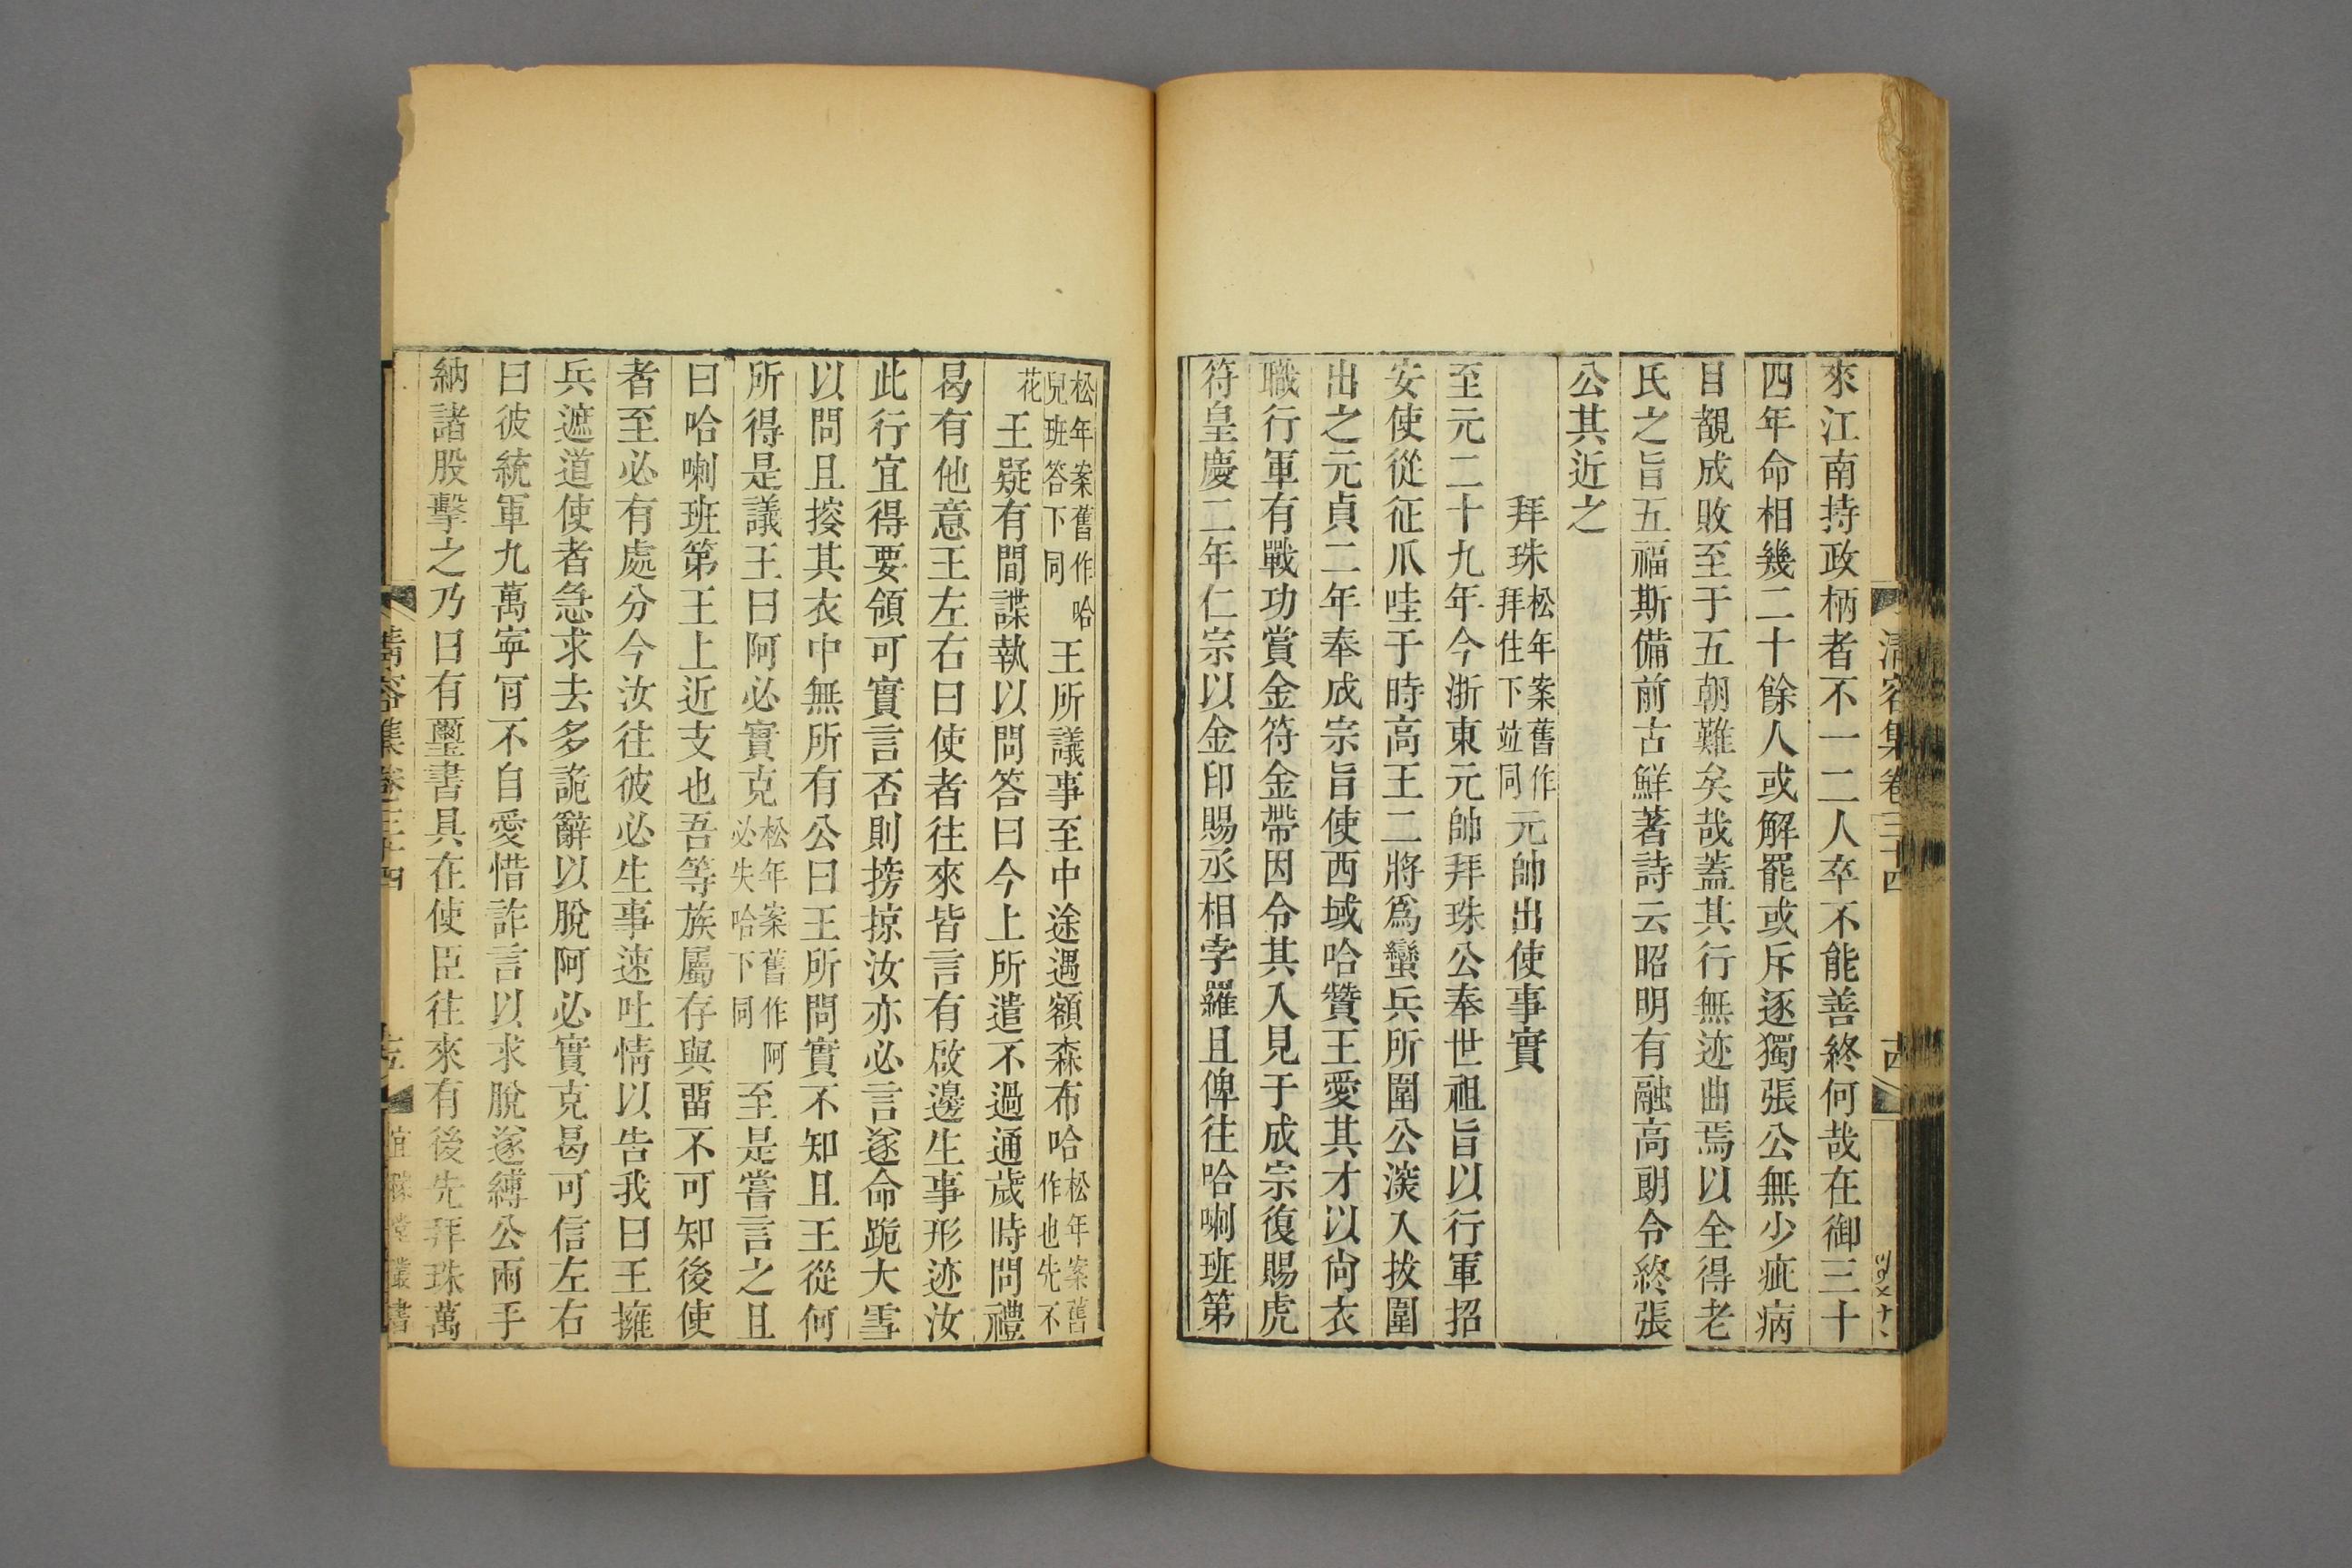 來江南持政柄者不一二人卒不能善終何哉在御三十
四年命相幾二十餘人或解罷或斥逐獨張公無少疵病
目覩成敗至于五朝難矣哉蓋其行無迹曲焉以全得老
氏之旨五福斯備前古鮮著詩云昭明有融高朗令終張
公其近之
拜珠松年案舊作拜住下並同元帥出使事實
至元二十九年今浙東元帥拜珠公奉世祖旨以行軍招
安使從征爪哇于時高王二將爲蠻兵所圍公深入拔圍
出之元貞二年奉成宗旨使西域哈贊王愛其才以尙衣
職行軍有戰功賞金符金帶因令其入見于成宗復賜虎
符皇慶二年仁宗以金印賜丞相孛羅且俾往哈喇班第
清容集卷三十四
松年案舊作哈兒班答下同王所議事至中途遇額森布哈松年案舊作也先不
花王疑有間諜執以問答曰今上所遣不過通歲時問禮
曷有他意王左右曰使者往來皆言有啟邊生事形迹汝
此行宜得要領可實言否則搒掠汝亦必言遂命跪大雪
以問且搜其衣中無所有公曰王所問實不知且王從何
所得是議王曰阿必實克松年案舊作阿必失哈下同至是嘗言之且
曰哈喇班第王上近支也吾等族屬存與留不可知後使
者至必有處分今汝往彼必生事速吐情以告我曰王擁
兵遮道使者急求去多詭辭以脫阿必實克曷可信左右
曰彼統軍九萬寧肎不自愛惜詐言以求脫遂縛公兩手
納諸股擊之乃曰有璽書具在使臣往來有後先拜珠萬
清容集卷三十四
宜稼堂叢書